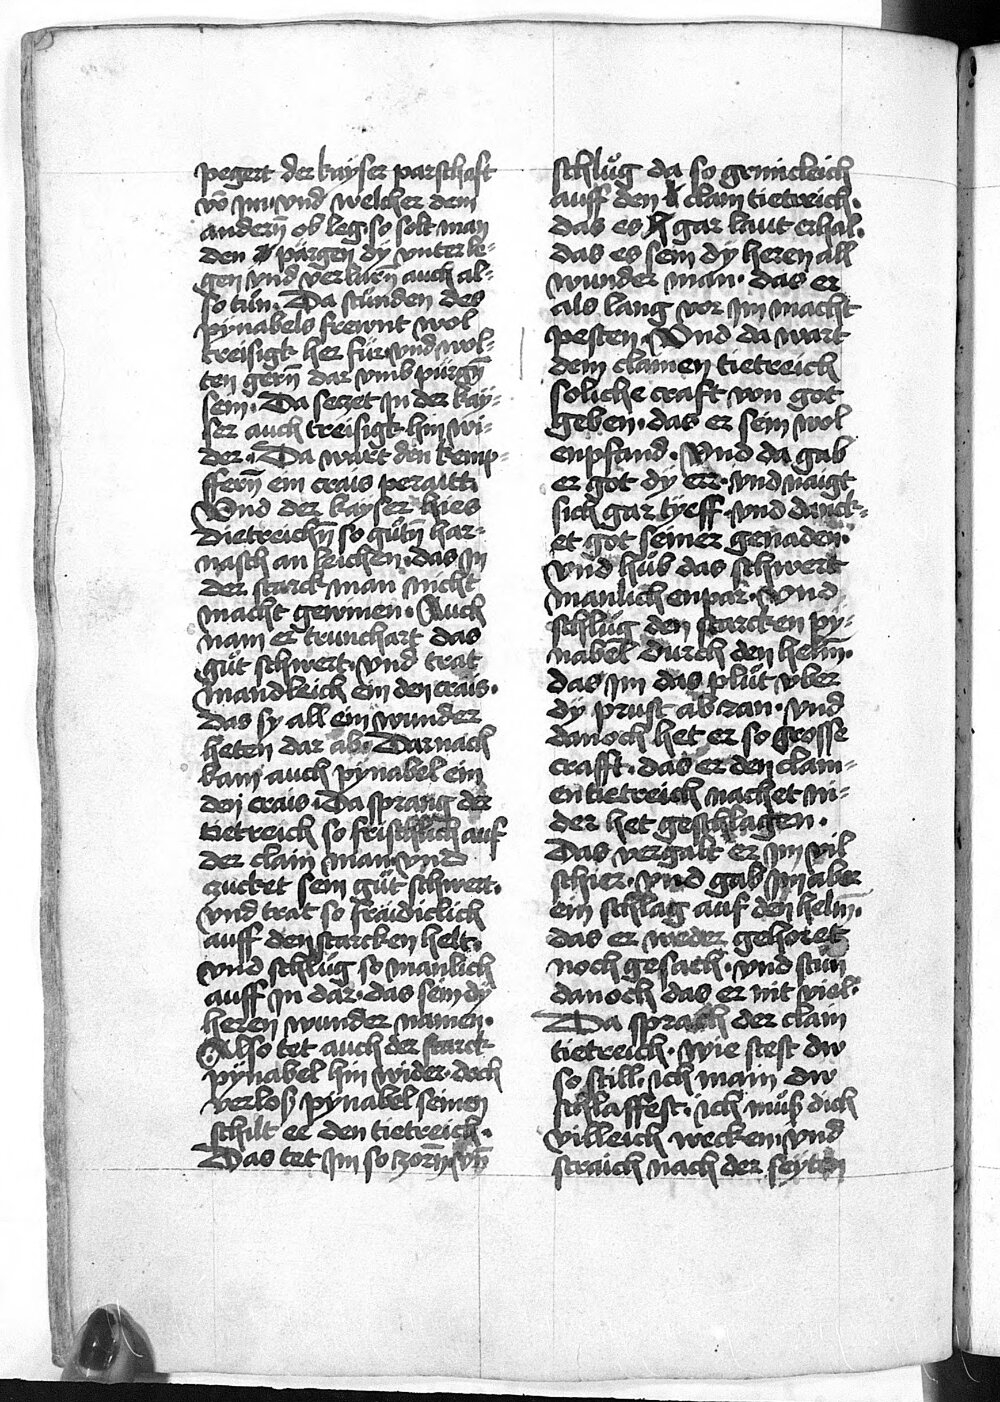 pegert der kayser parschaft
vō im · vnd welcher dem
andern̄ ob leg · so solt man
den pürgen dy vnter le⸗
gen vnd verlurn̄ auch al⸗
so tun. Da stŭnden des
pynabels frewnt wol
treisigk her für · vnd wol⸗
ten gern̄ dar vmb pürgn̄
sein. Da seczet in der kay⸗
ser auch treisigk hin wi⸗
der. Da wart den kemp⸗
ffern̄ ein crais peraitt.
Vnd der kayser hies
dietreichn̄ so gůtn̄ har⸗
nasch an leichen · das in
der starck man nicht
macht gewinen. Auch
nam er trunchart das
gůt schwert · vnd trat
mandleich ein den crais.
Das sy all ein wunder
heten dar ab. Darnach
kam auch pynabel ein
den crais. Da sprang der
tietreich so frischlich auf
der clain man vnd
zucket sein gůt schwert.
vnd trat so fräidiclich
auff den starcken helt.
vnd schlůg so manlich
auff in dar · das sein dy
heren wunder namen.
Also tet auch der starck
pynabel hin wider · doch
verlos pynabel seinen
schilt ee den tietreich.
Das tet im so zorn̄ · vn̄
schlůg da so grimcleich
auff den clain tietreich.
das es gar laut erhal.
das es sein dy heren all
wunder nam · das er
als lang vor im macht
pesten. Vnd da wart
dem clainen tietreich
soliche craft von got
geben · das er sein wol
enpfand. Vnd da gab
er got dy err · vnd naigt
sich gar tyeff · vnd danck⸗
et got seiner genaden.
vnd hůb das schwert
manlich enpar. Vnd
schlůg den starcken py⸗
nabel durch den helm̄.
das im das plůt vber
dy prust ab ran · vnd
danoch het er so grosse
crafft. das er den clain⸗
en tietreich nachet ni⸗
der het geschlagen.
Das vergalt er im vil
schier · vnd gab im aber
ein schlag auf den helm̄.
das er weder gehoret
noch gesach · vnd stůn
danoch das er nit viel.
Da sprach der clain
tietreich. wie stest dw
so still. ich main dw
schlaffest. ich můs dich
villeich wecken · vnd
straich nach der seyten